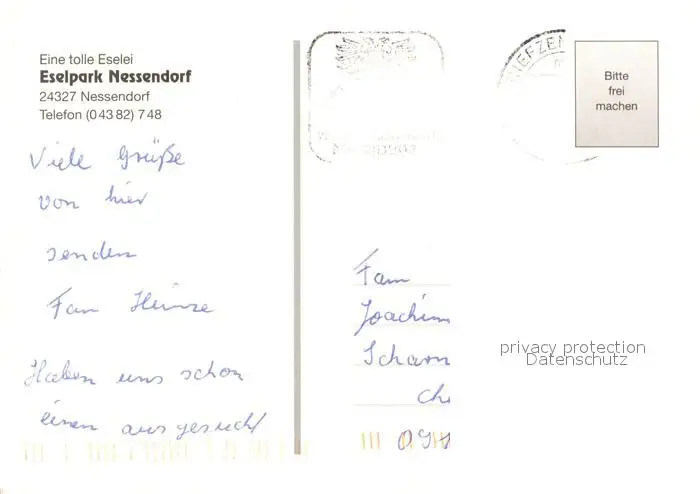 Eine tolle Eselei
Eselpark Nessendorf
24327 Nessendorf
Telefon (0 43 82) 7 48
Viele Grüße
von hier
senden
Fam Heinze
Haben uns schon
einen ausgesucht
Bitte
frei
machen
Fam
Joachim
Scharn
Che
privacy protection
Datenschutz